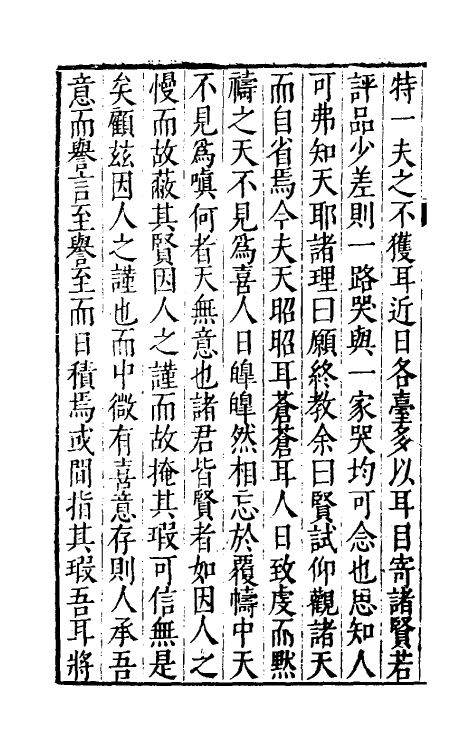 特一夫之不獲耳近日各臺多以耳目寄諸賢若
評品少差則一路哭與一家哭均可念也思知人
可弗知天耶諸理曰願終教余曰賢試仰觀諸天
而自省焉今夫天昭昭耳蒼蒼耳人日致虔而黙
禱之天不見為喜人日皥皥然相忘於覆幬中天
不見為嗔何者天無意也諸君皆賢者如因人之
慢而故蔽其賢因人之謹而故掩其瑕可信無是
矣顧茲因人之謹也而中微有喜意存則人承吾
意而譽言至譽至而日積焉或間指其瑕吾耳將